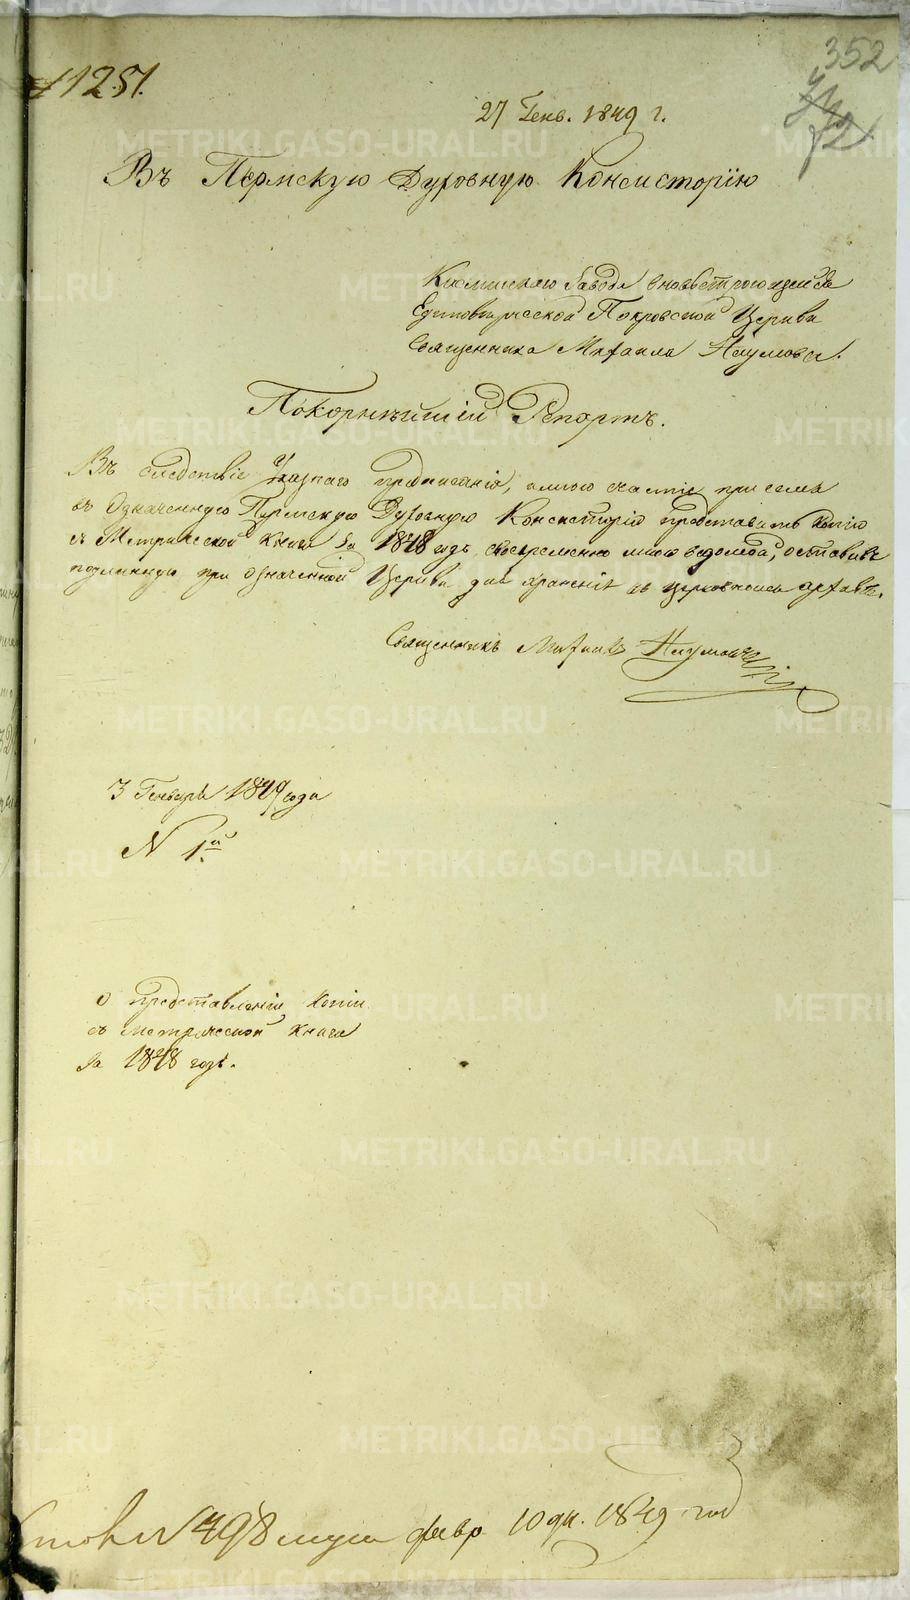 352
1251.
27 Генв. 1849 г.
Въ Пермскую Духовную Консисторію
Завода вновьстроющейся
Единоверческой Покровской Церкви
Священника Михаила Наумова.
Покорнѣйшій Репортъ.
Въ следствіе Указнаго предписанія, имѣю счастіе при семъ
въ Означенную Пермскую Духовную Консисторію представить Копію
съ Метрической Книги за 1848 годъ, своевременно мною ведомой, оставивъ
подлинную при означенной Церкви для храненія въ церковномъ архивѣ.
Священникъ Михаилъ Наумовъ
3 Генваря 1849 года
N 1й
О представленіи Копіи
съ метрической книги
за 1848 годъ.
N 498 февр 10 дн. 1849 год
METRIKI.GASO-URAL.RU